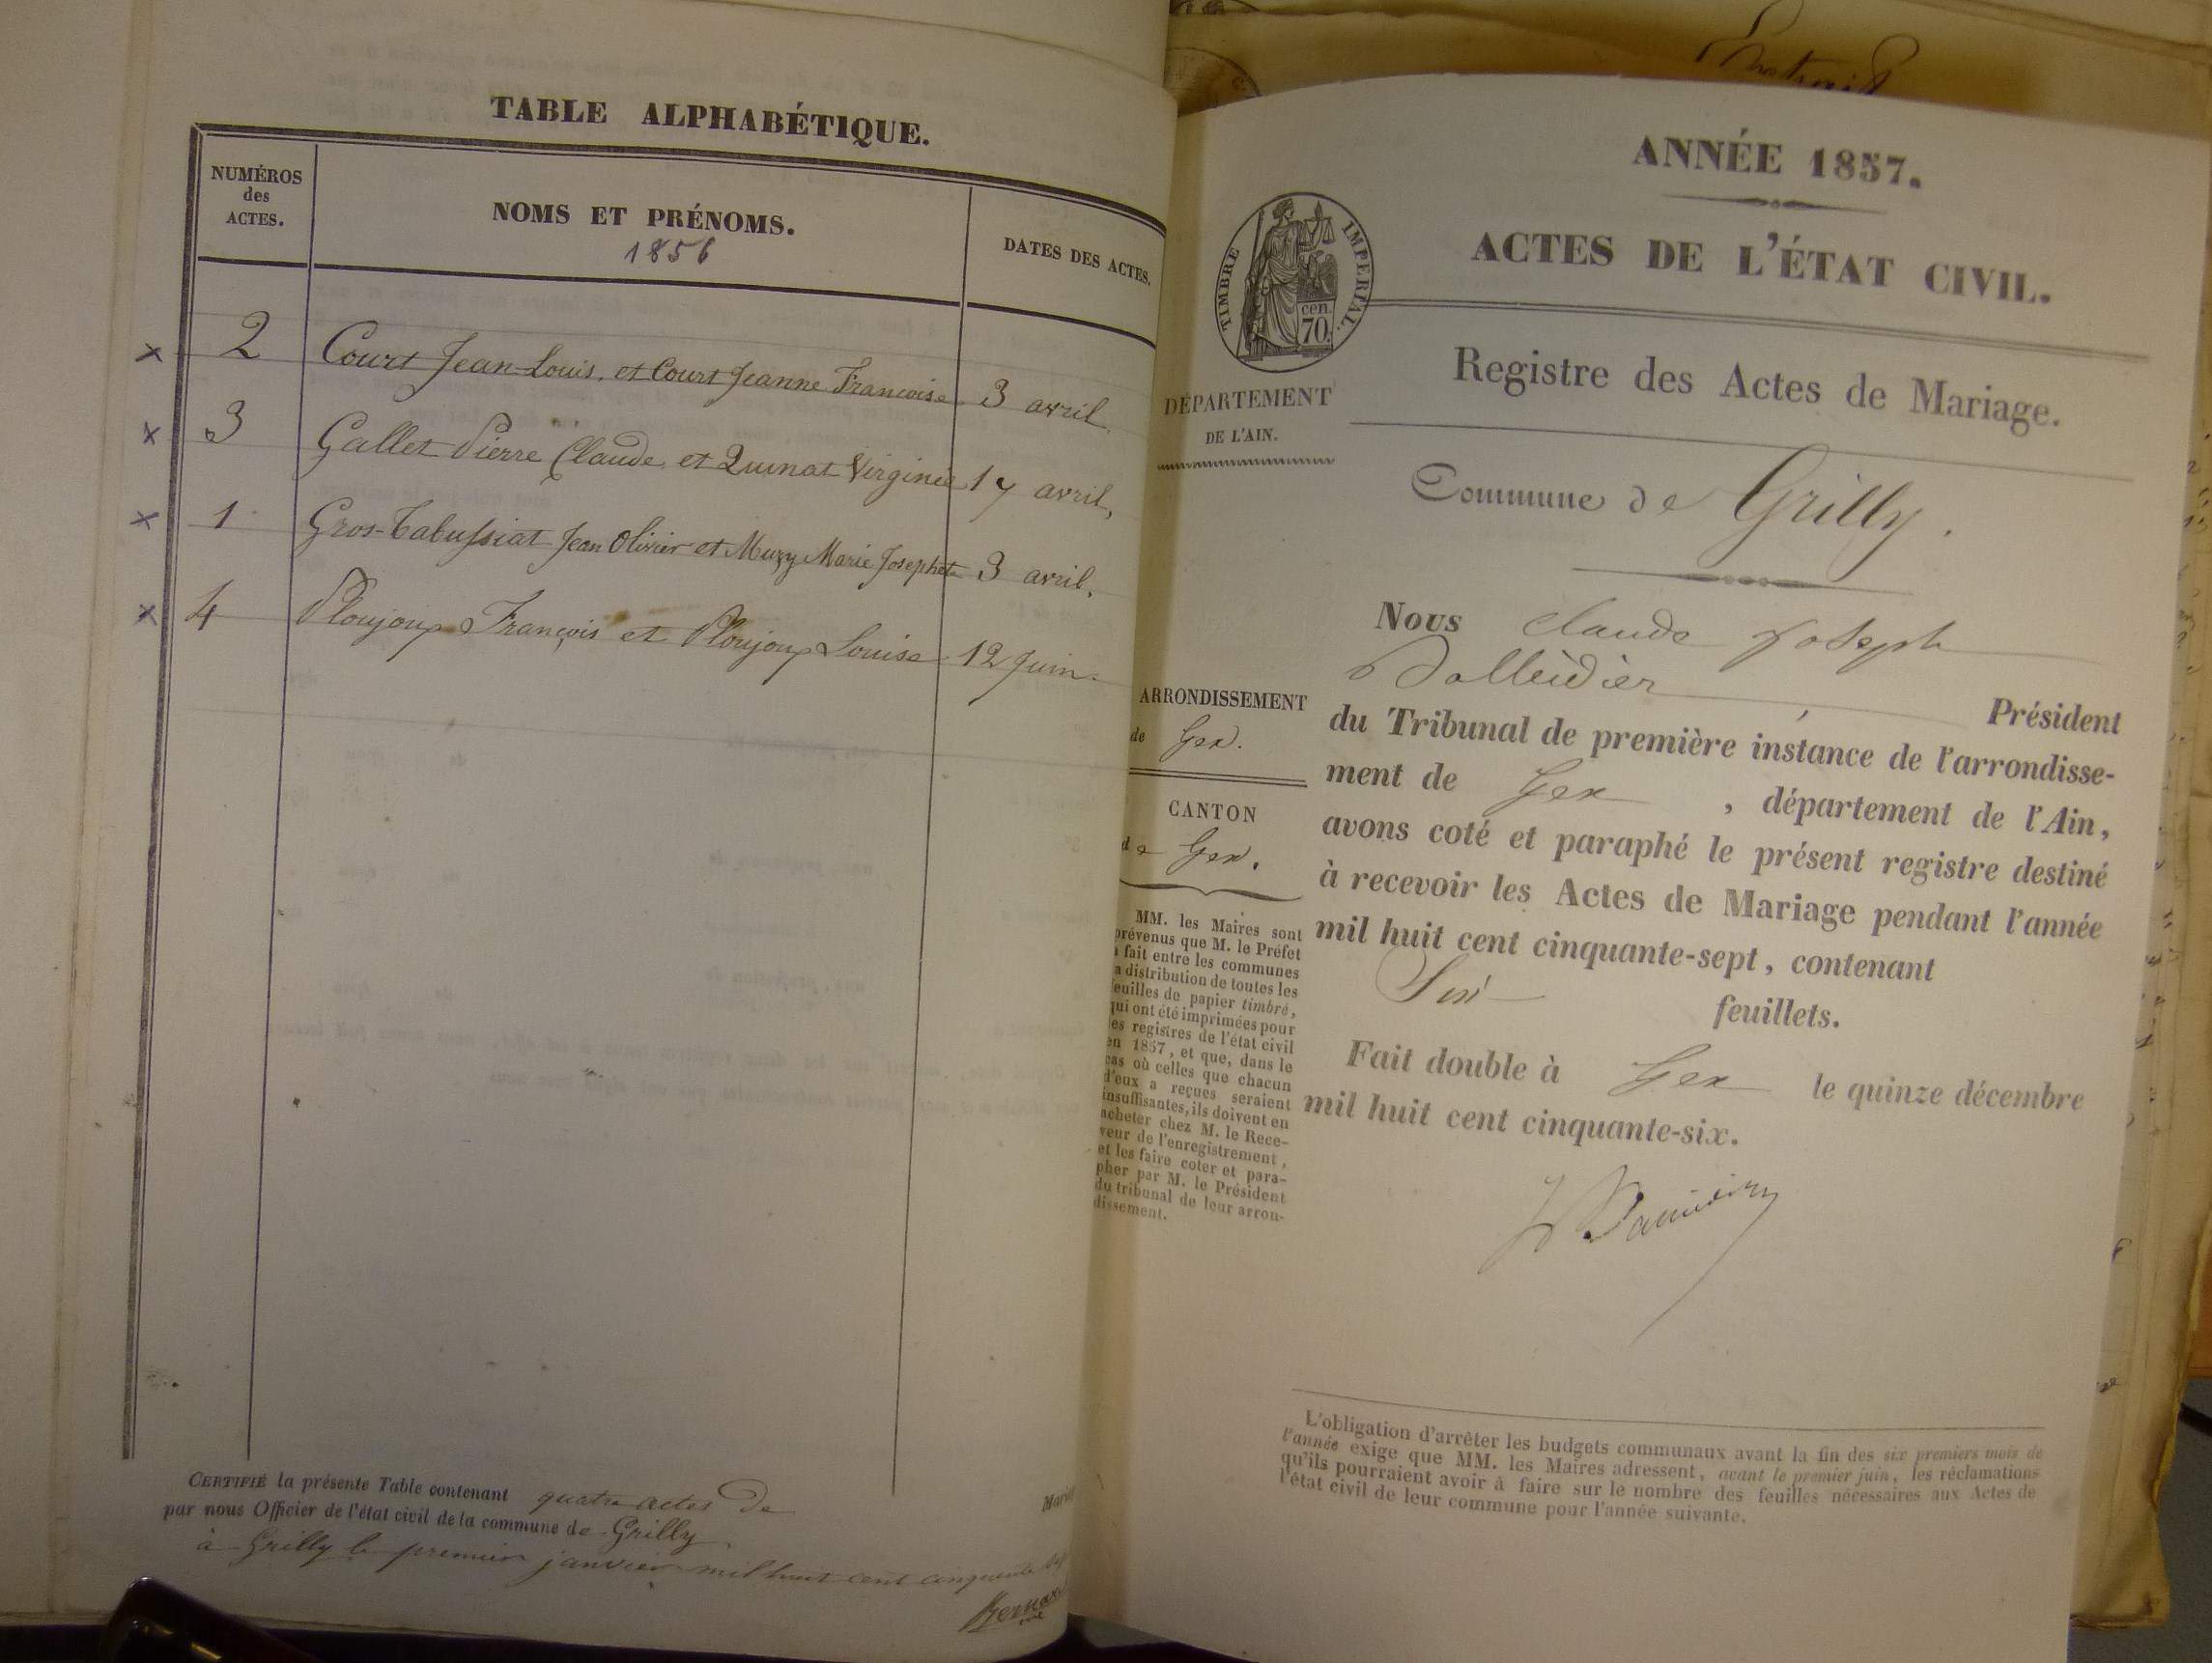 TABLE ALPHABÉTIQUE.
NUMÉROS
des
ACTES.
NOMS ET PRÉNOMS.
1856
DATES DES ACTES.
2 Court Jean-Louis, et Court Jeanne Françoise 3 avril.
3 Gallet Pierre Claude, et Quinat Virginie 17 avril,
1 Gros-Tabussiat Jean Olivier et Muzy Marie Josephete 3 avril.
4 Ploujoux François et Ploujoux Louise 12 Juin.
CERTIFIÉ la présente Table contenant quatre actes de
par nous Officier de l'état civil de la commune de Grilly
à Grilly le premier janvier mil huit cent cinquante
ANNÉE 1857.
ACTES DE L'ÉTAT CIVIL.
TIMBRE IMPÉRIAL.
cen.
70.
Registre des Actes de Mariage.
DÉPARTEMENT
DE L'AIN.
Commune de Grilly.
Nous Claude Joseph
Président
ARRONDISSEMENT
de Gex.
du Tribunal de première instance de l'arrondisse-
ment de Gex, département de l'Ain,
CANTON
de Gex.
avons coté et paraphé le présent registre destiné
à recevoir les Actes de Mariage pendant l'année
mil huit cent cinquante-sept, contenant
Six feuillets.
Fait double à Gex le quinze décembre
mil huit cent cinquante-six.
MM. les Maires sont
prévenus que M. le Préfet
a fait entre les communes
la distribution de toutes les
feuilles de papier timbré,
qui ont été imprimées pour
les registres de l'état civil
en 1857, et que, dans le
cas où celles que chacun
d'eux a reçues seraient
insuffisantes, ils doivent en
acheter chez M. le Rece-
veur de l'enregistrement,
et les faire coter et para-
pher par M. le Président
du tribunal de leur arron-
dissement.
L'obligation d'arrêter les budgets communaux avant la fin des six premiers mois de
l'année exige que MM. les Maires adressent, avant le premier juin, les réclamations
qu'ils pourraient avoir à faire sur le nombre des feuilles nécessaires aux Actes de
l'état civil de leur commune pour l'année suivante.